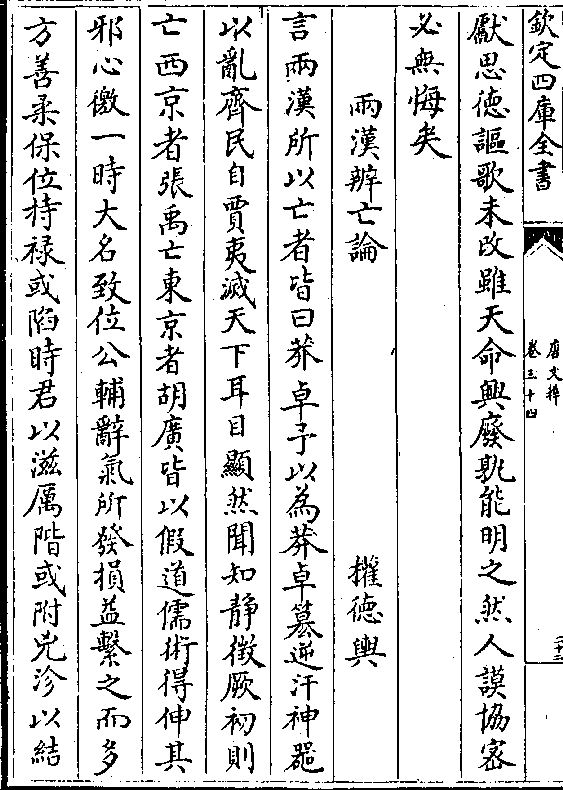 欽定四庫全書
唐文粹
卷三十四
二十二
獻思德謳歌未改雖天命興廢孰能明之然人謨協宻
必無悔矣
兩漢辨亡論 權德輿
言兩漢所以亡者皆曰莽卓予以為莽卓篡逆汙神器
以亂齊民自賈夷滅天下耳目顯然聞知静徵厥初則
亡西京者張禹亡東京者胡廣皆以假道儒術得伸其
邪心徼一時大名致位公輔辭氣所發損益繫之而多
方善柔保位持禄或陷時君以滋厲階或附兇沴以結